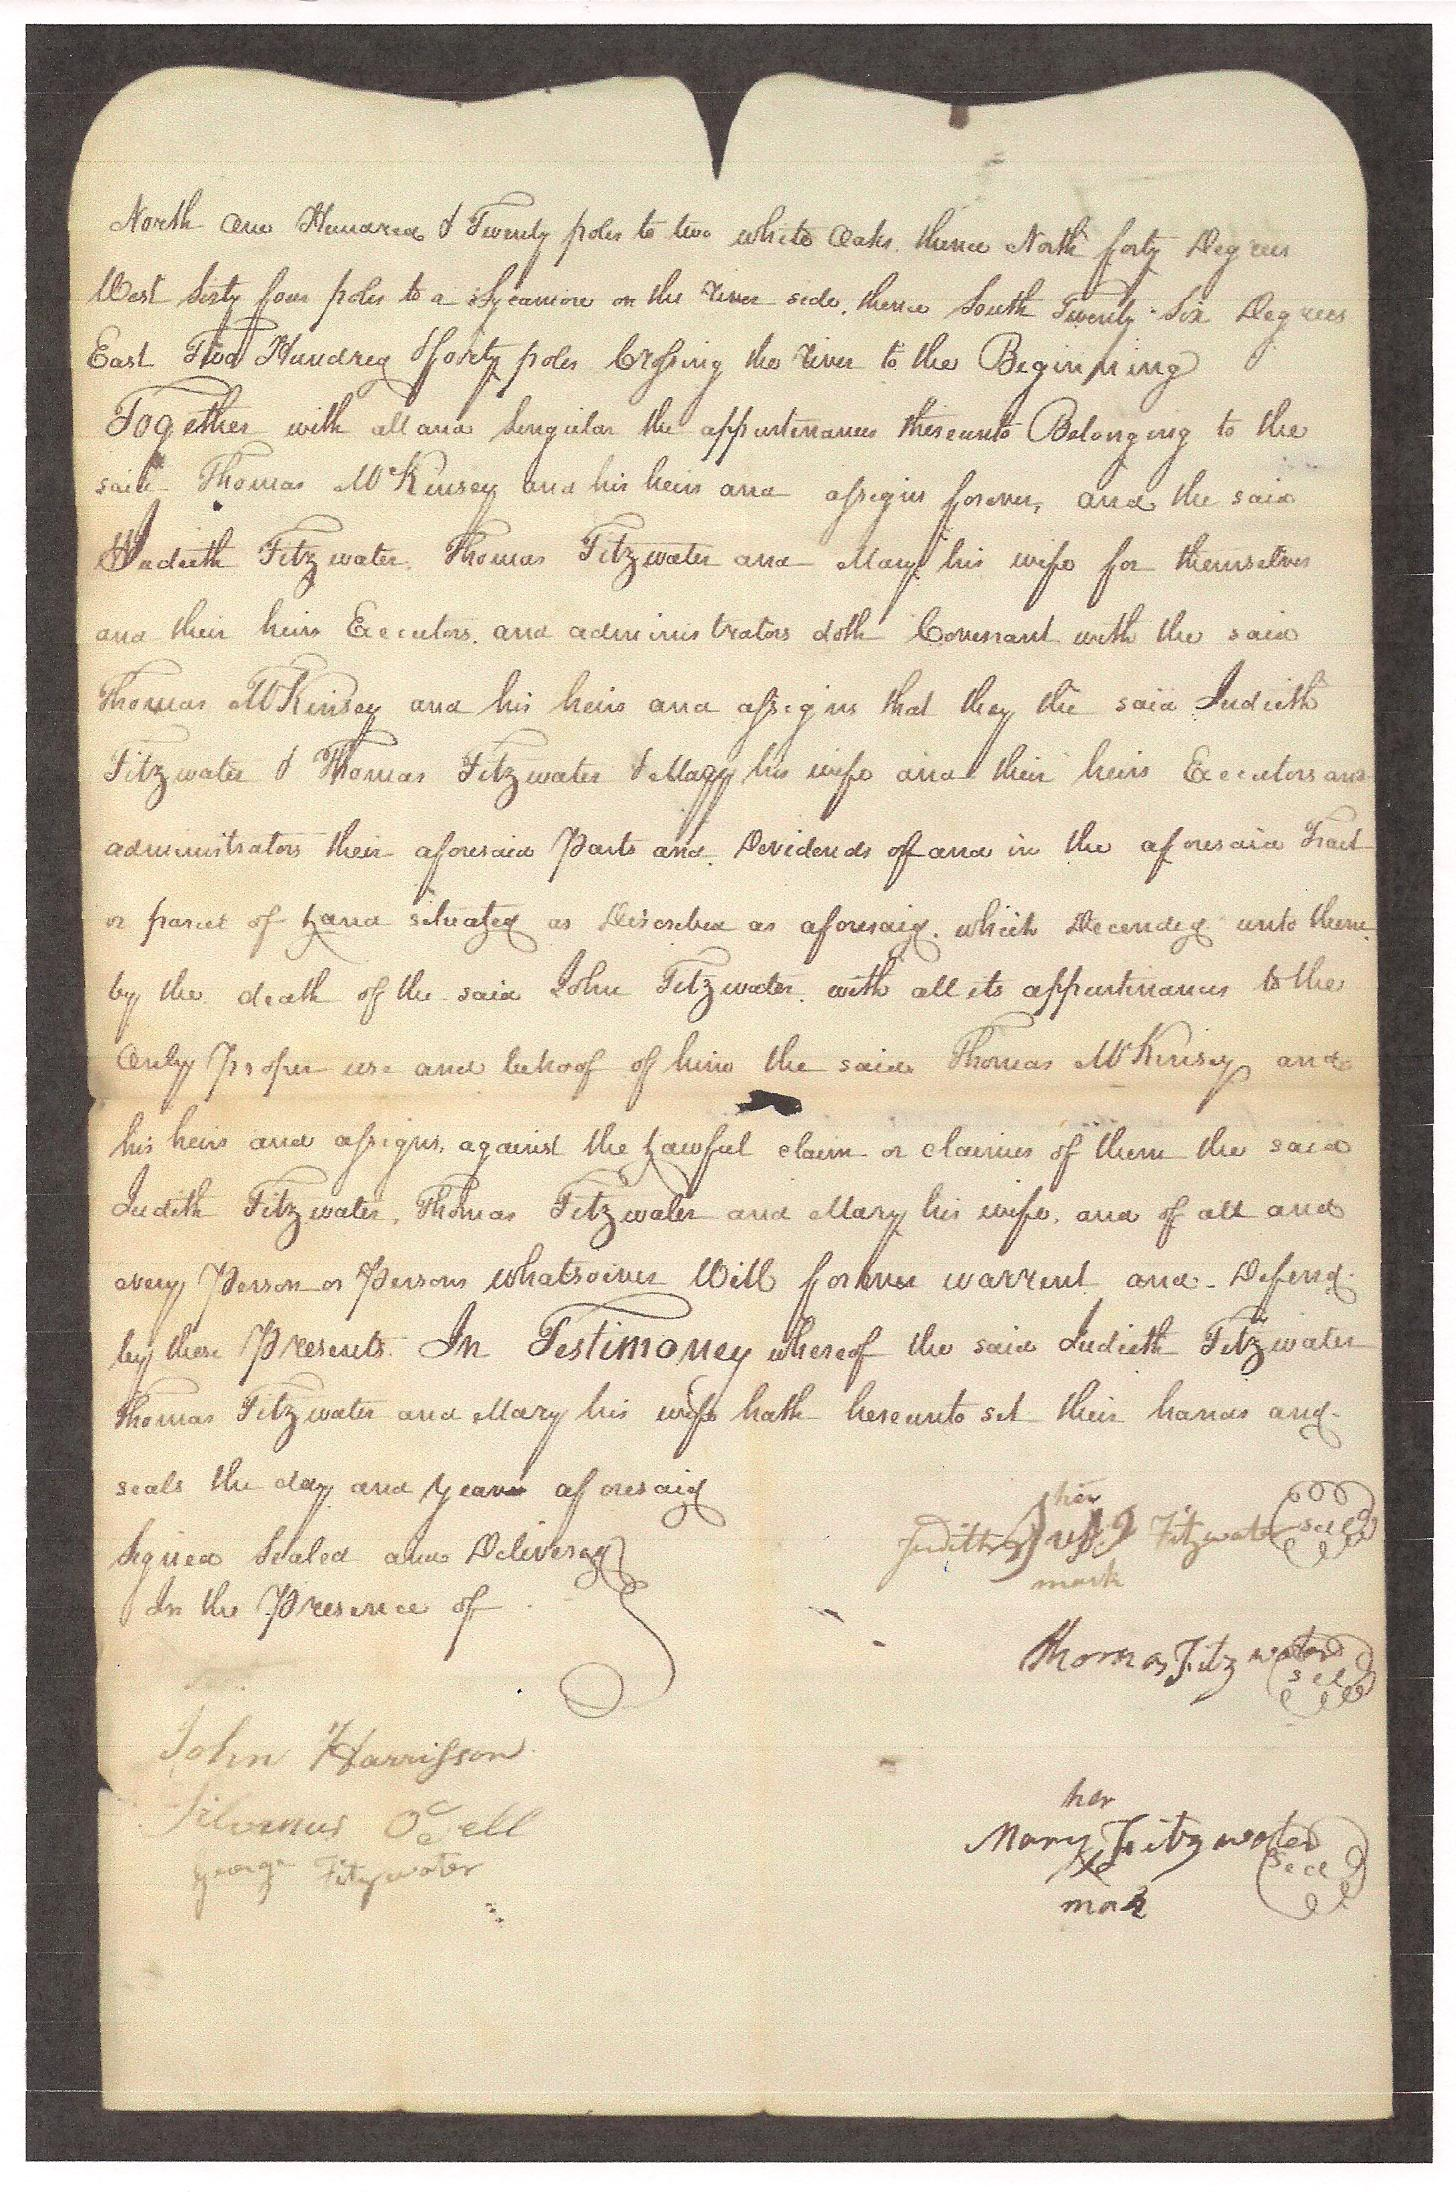 North One Hundred & Twenty poles to two white Oaks. thence North forty Degrees
West Sixty four poles to a Sycamore on the River side, thence South Twenty Six Degrees
East Two Hundred & forty poles Crossing the River to the Beginning
Together with all and Singular the appurtinances thereunto Belonging to the
said Thomas McKinsey and his heirs and assigns forever, and the said
Judieth Fitzwater. Thomas Fitzwater and Mary his wife for themselves
and their heirs Executors. and administrators doth Covenant with the said
Thomas McKinsey and his heirs and assigns that they the said Judieth
Fitzwater & Thomas Fitzwater & Mary his wife and their heirs Executors and
administrators their aforesaid Parts and Devidends of and in the aforesaid Tract
or parcel of Land situated as Discribed as aforesaid. which Decended unto them
by the death of the said John Fitzwater. with all its appurtinances to the
Only Proper use and behoof of him the said Thomas McKinsey and
his heirs and assigns. against the Lawful claim or claimes of them the said
Judith Fitzwater. Thomas Fitzwater and Mary his wife. and of all and
every Person or Persons whatsoiver Will forever warrent and Defend
by these Presents. In Testimoney whereof the said Judieth Fitzwater
Thomas Fitzwater and Mary his wife hath hereunto set their hands and
seals the day and year aforesaid
Signed Sealed and Delivered
In the Presence of
her
Judith Fitzwater Seal
mark
Thomas Fitzwater Seal
John Harrisson
Silvenus Odell
George Fitzwater
her
Mary Fitzwater Seal
mark